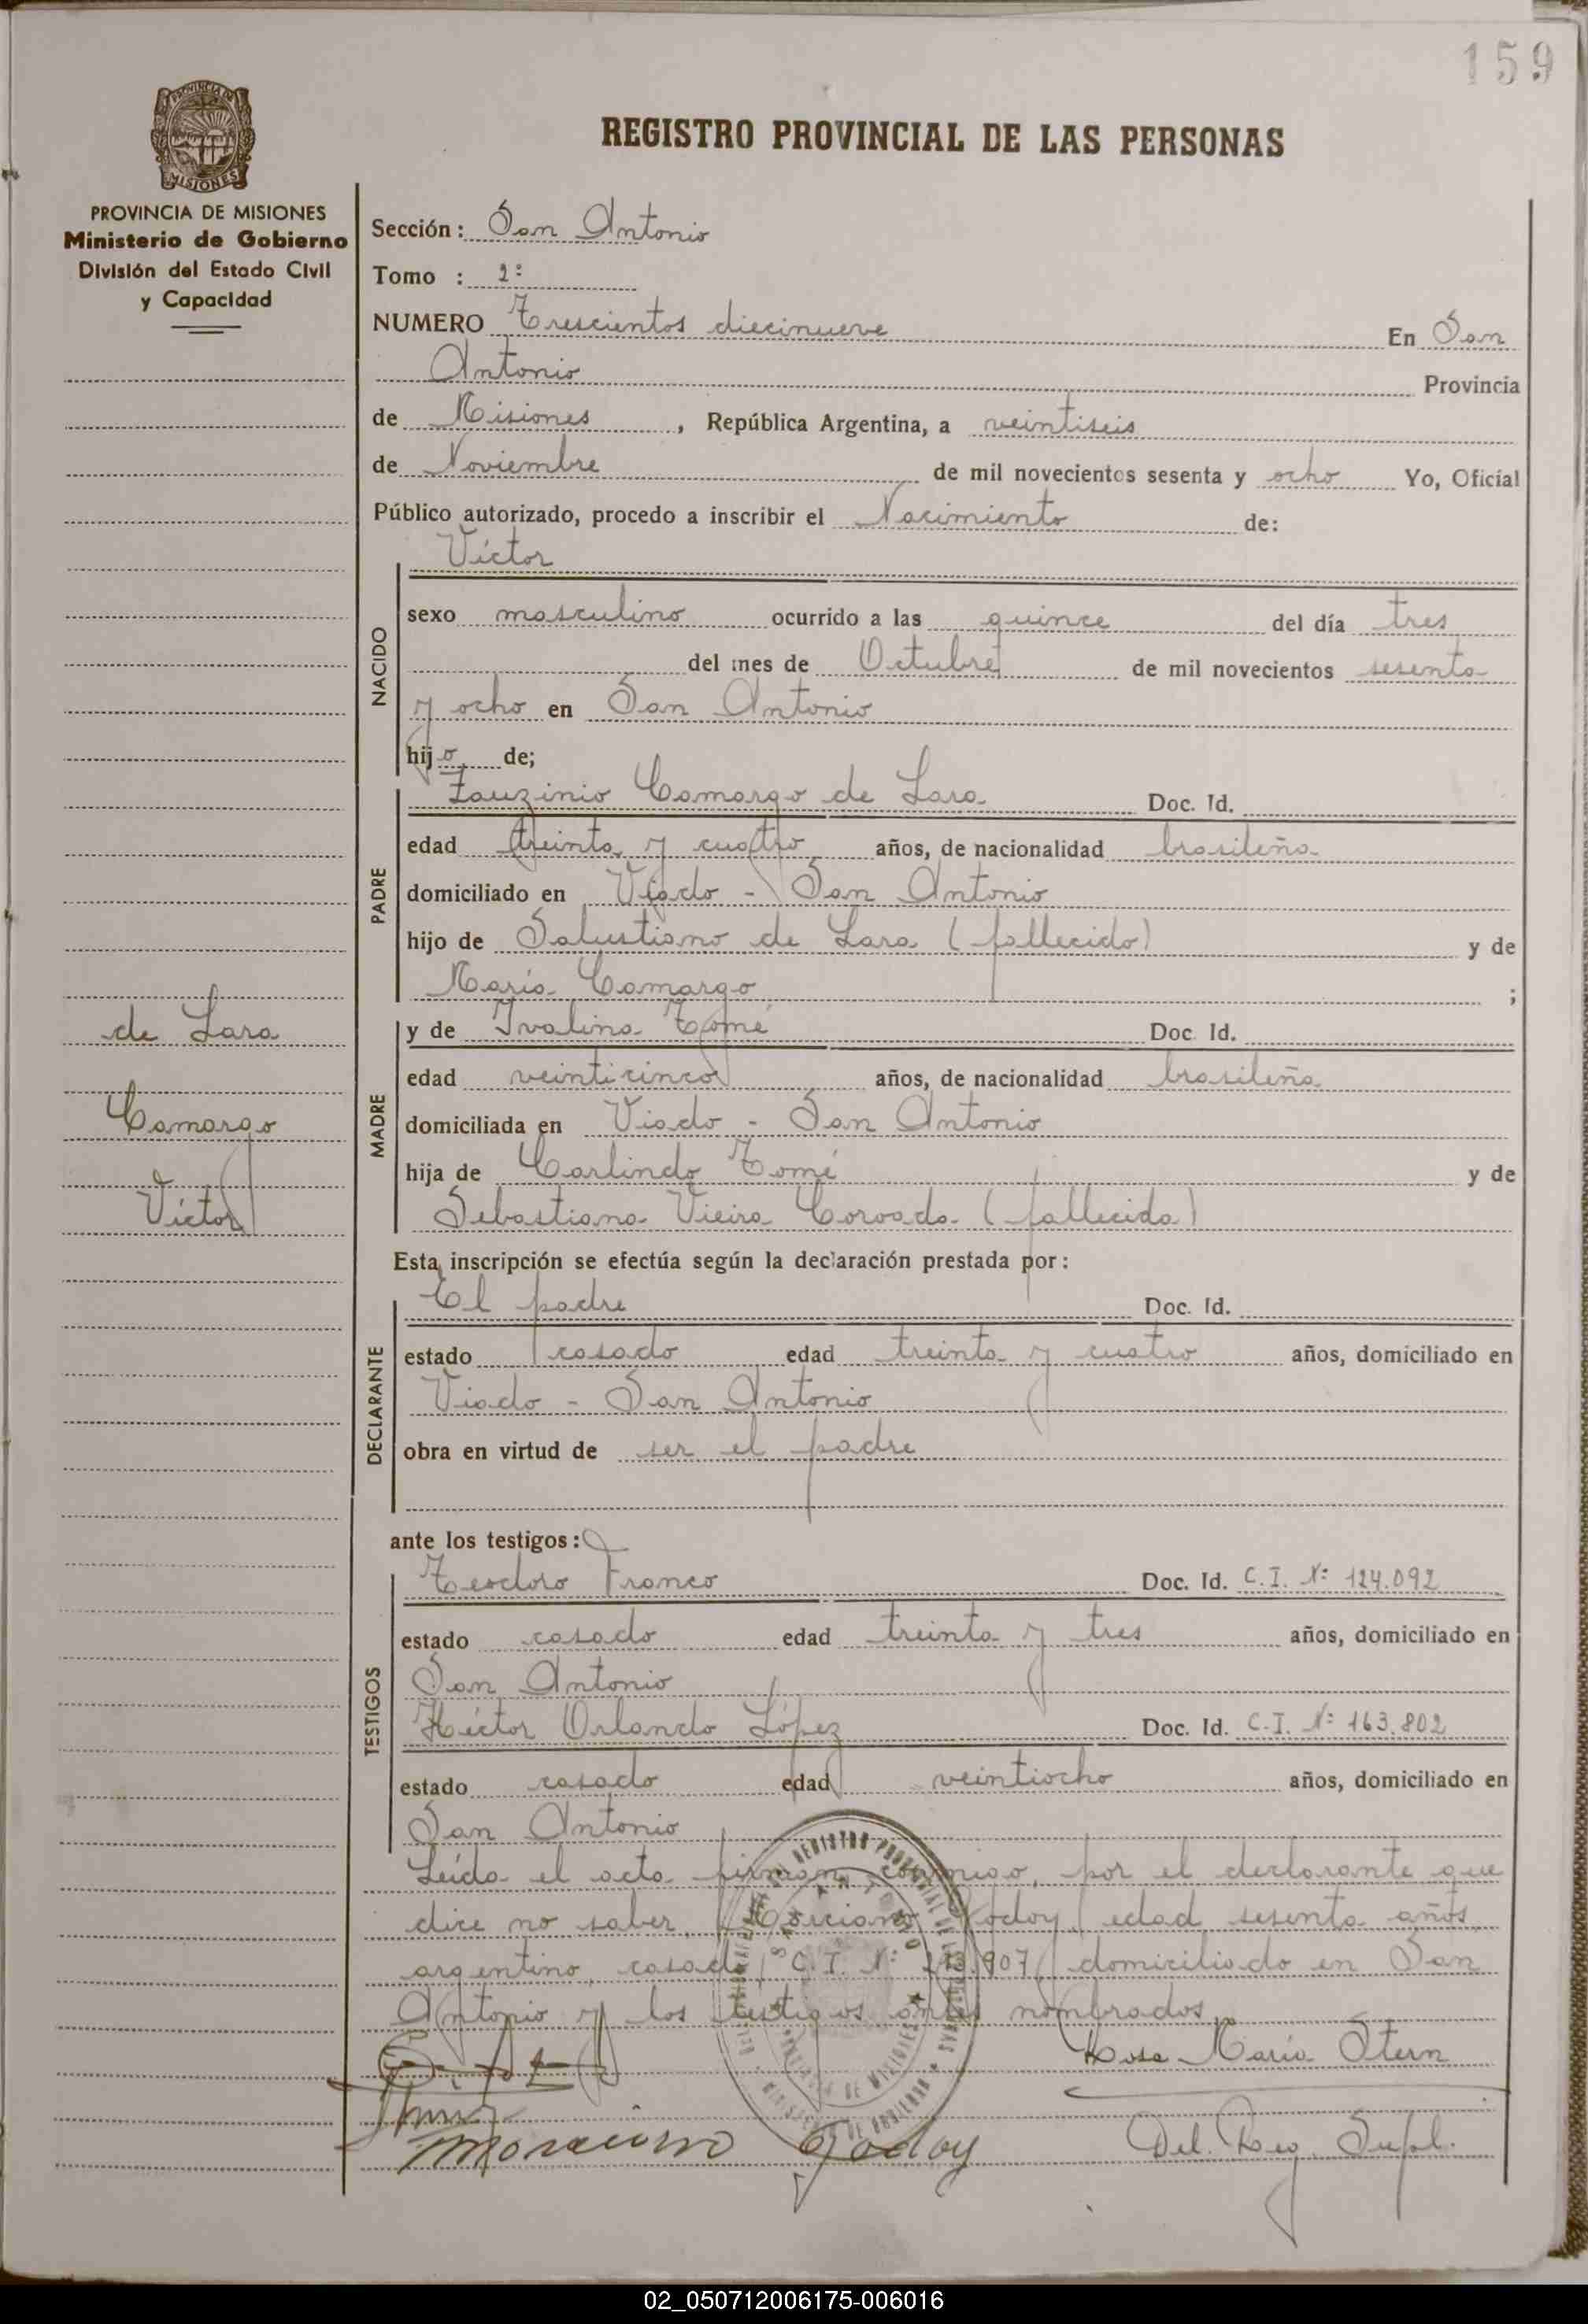 159
PROVINCIA DE MISIONES
Ministerio de Gobierno
División del Estado Civil
y Capacidad
REGISTRO PROVINCIAL DE LAS PERSONAS
Sección: San Antonio
Tomo : 2º
NUMERO Trescientos diecinueve En San
Antonio Provincia
de Misiones, República Argentina, a veintiseis
de Noviembre de mil novecientos sesenta y ocho Yo, Oficial
Público autorizado, procedo a inscribir el Nacimiento de:
Víctor
NACIDO
sexo masculino ocurrido a las quince del día tres
del mes de Octubre de mil novecientos sesenta
y ocho en San Antonio
hijo de;
PADRE
Camargo de Lara Doc. Id.
edad treinta y cuatro años, de nacionalidad brasileña
domiciliado en Viado - San Antonio
hijo de Salustiano de Lara (fallecido) y de
María Camargo ;
MADRE
y de Ivalina Tomé Doc. Id.
edad veinticinco años, de nacionalidad brasileña
domiciliada en Viado - San Antonio
hija de Carlindo Tomé y de
Sebastiana Vieira Coroada (fallecida)
de Lara
Camargo
Víctor
Esta inscripción se efectúa según la declaración prestada por:
DECLARANTE
El padre Doc. Id.
estado casado edad treinta y cuatro años, domiciliado en
Viado - San Antonio
obra en virtud de ser el padre
ante los testigos:
TESTIGOS
Teodoro Franco Doc. Id. C.I. Nº 124.092
estado casado edad treinta y tres años, domiciliado en
San Antonio
Héctor Orlando López Doc. Id. C.I. Nº 163.802
estado casado edad veintiocho años, domiciliado en
San Antonio
Leída el acta firman conmigo, por el declarante que
dice no saber, Marciano Godoy, edad sesenta años,
argentino, casado, C.I. Nº domiciliado en San
Antonio y los testigos antes nombrados.
Rosa María Stern
Marciano Godoy
Del. Reg. Supl.
02_050712006175-006016